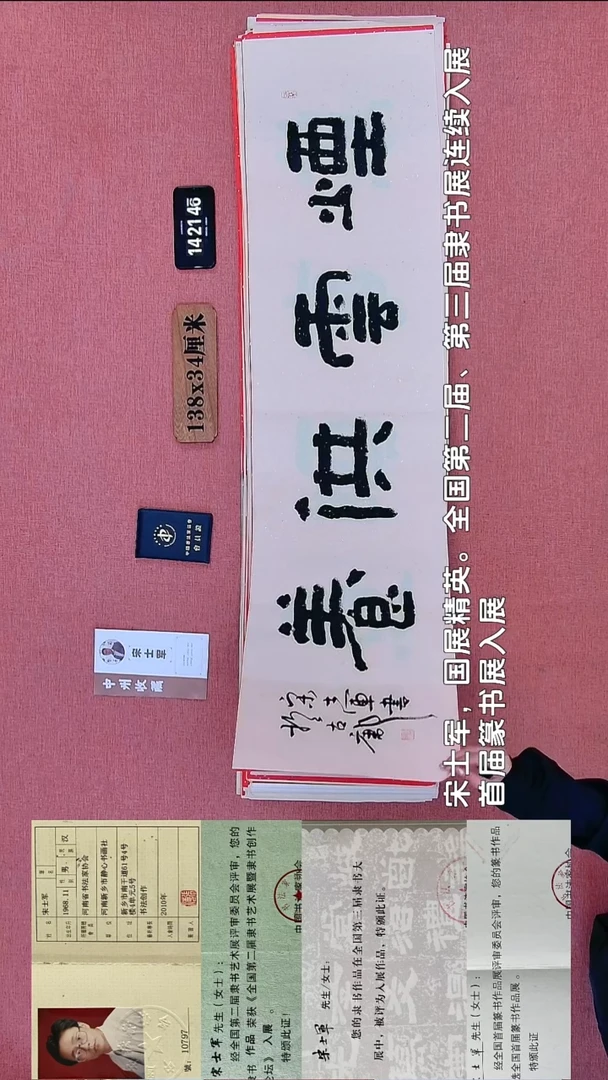 煙雲供養
宋士軍書
於古鄘
14 21 46
138x34厘米
中国书法家协会
会员证
宋士军
中州收藏
宋士军，国展精英。全国第二届、第三届隶书展连续入展
首届篆书展入展
宋士军
1968.11 男 汉
河南省书法家协会
河南新乡市静心书画社
新乡市南干道61号4号
楼4单元5号
书法创作
2010年
號: 10797
宋士军 先生（女士）:
经全国第二届隶书艺术展评审委员会评审，您的
隶书 作品 荣获《全国第二届隶书艺术展暨隶书创作
论坛》入展。
特颁此证！
宋士军 先生/女士:
您的隶书作品在全国第三届隶书大
展中，被评为入展作品，特颁此证。
士军 先生（女士）:
经全国首届篆书作品展评审委员会评审，您的篆书作品
选全国首届篆书作品展。
特颁此证